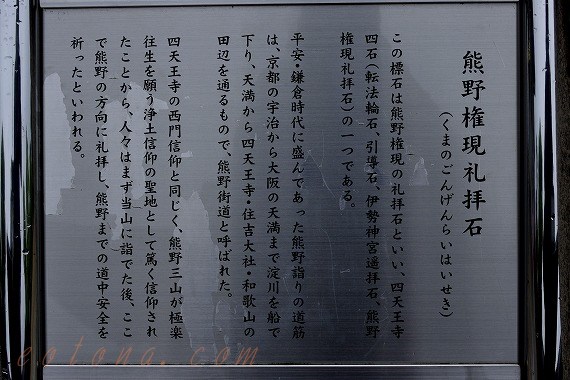 熊野権現礼拝石
（くまのごんげんらいはいせき）
この標石は熊野権現の礼拝石といい、四天王寺
四石（転法輪石、引導石、伊勢神宮遥拝石、熊野
権現礼拝石）の一つである。
平安・鎌倉時代に盛んであった熊野詣りの道筋
は、京都の宇治から大阪の天満まで淀川を船で
下り、天満から四天王寺・住吉大社・和歌山の
田辺を通るもので、熊野街道と呼ばれた。
四天王寺の西門信仰と同じく、熊野三山が極楽
往生を願う浄土信仰の聖地として篤く信仰され
たことから、人々はまず当山に詣でた後、ここ
で熊野の方向に礼拝し、熊野までの道中安全を
祈ったといわれる。
eotona.com